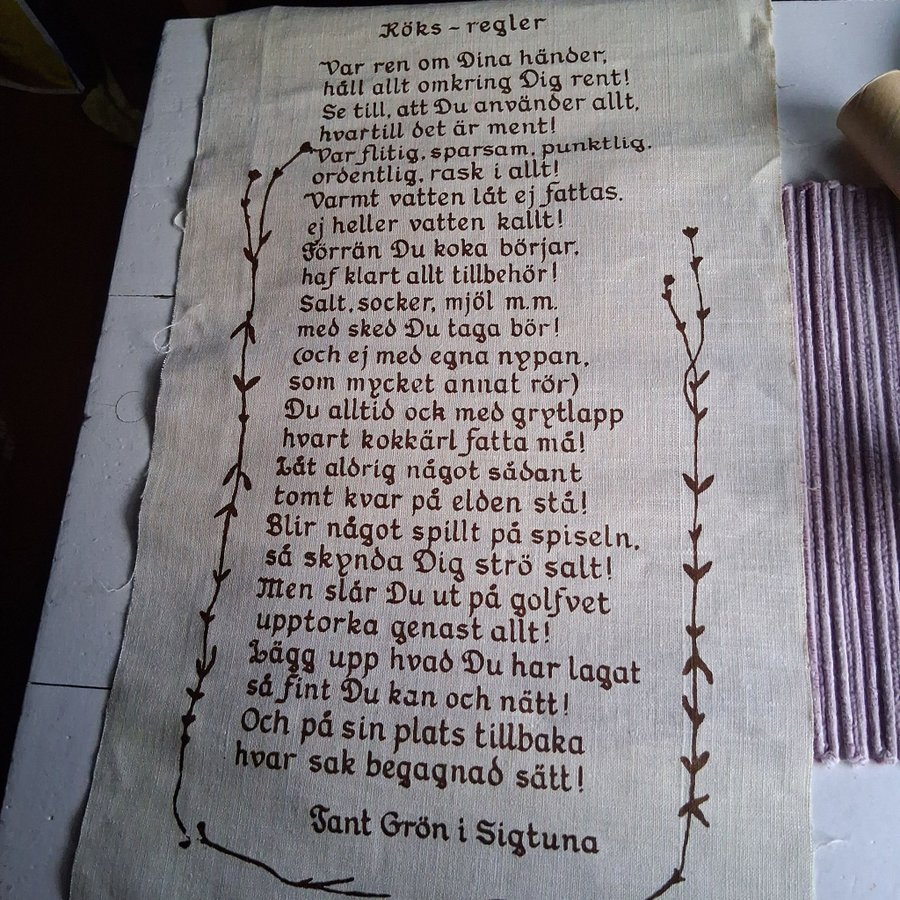 Köks-regler
Var ren om Dina händer,
håll allt omkring Dig rent!
Se till, att Du använder allt,
hvartill det är ment!
Var flitig, sparsam, punktlig.
ordentlig, rask i allt!
Varmt vatten låt ej fattas.
ej heller vatten kallt!
Förrän Du koka börjar,
haf klart allt tillbehör!
Salt, socker, mjöl m.m.
med sked Du taga bör!
(och ej med egna nypan,
som mycket annat rör)
Du alltid ock med grytlapp
hvart kokkärl fatta må!
Låt aldrig något sådant
tomt kvar på elden stå!
Blir något spillt på spiseln,
så skynda Dig strö salt!
Men slår Du ut på golfvet
upptorka genast allt!
Lägg upp hvad Du har lagat
så fint Du kan och nätt!
Och på sin plats tillbaka
hvar sak begagnad sätt!
Tant Grön i Sigtuna